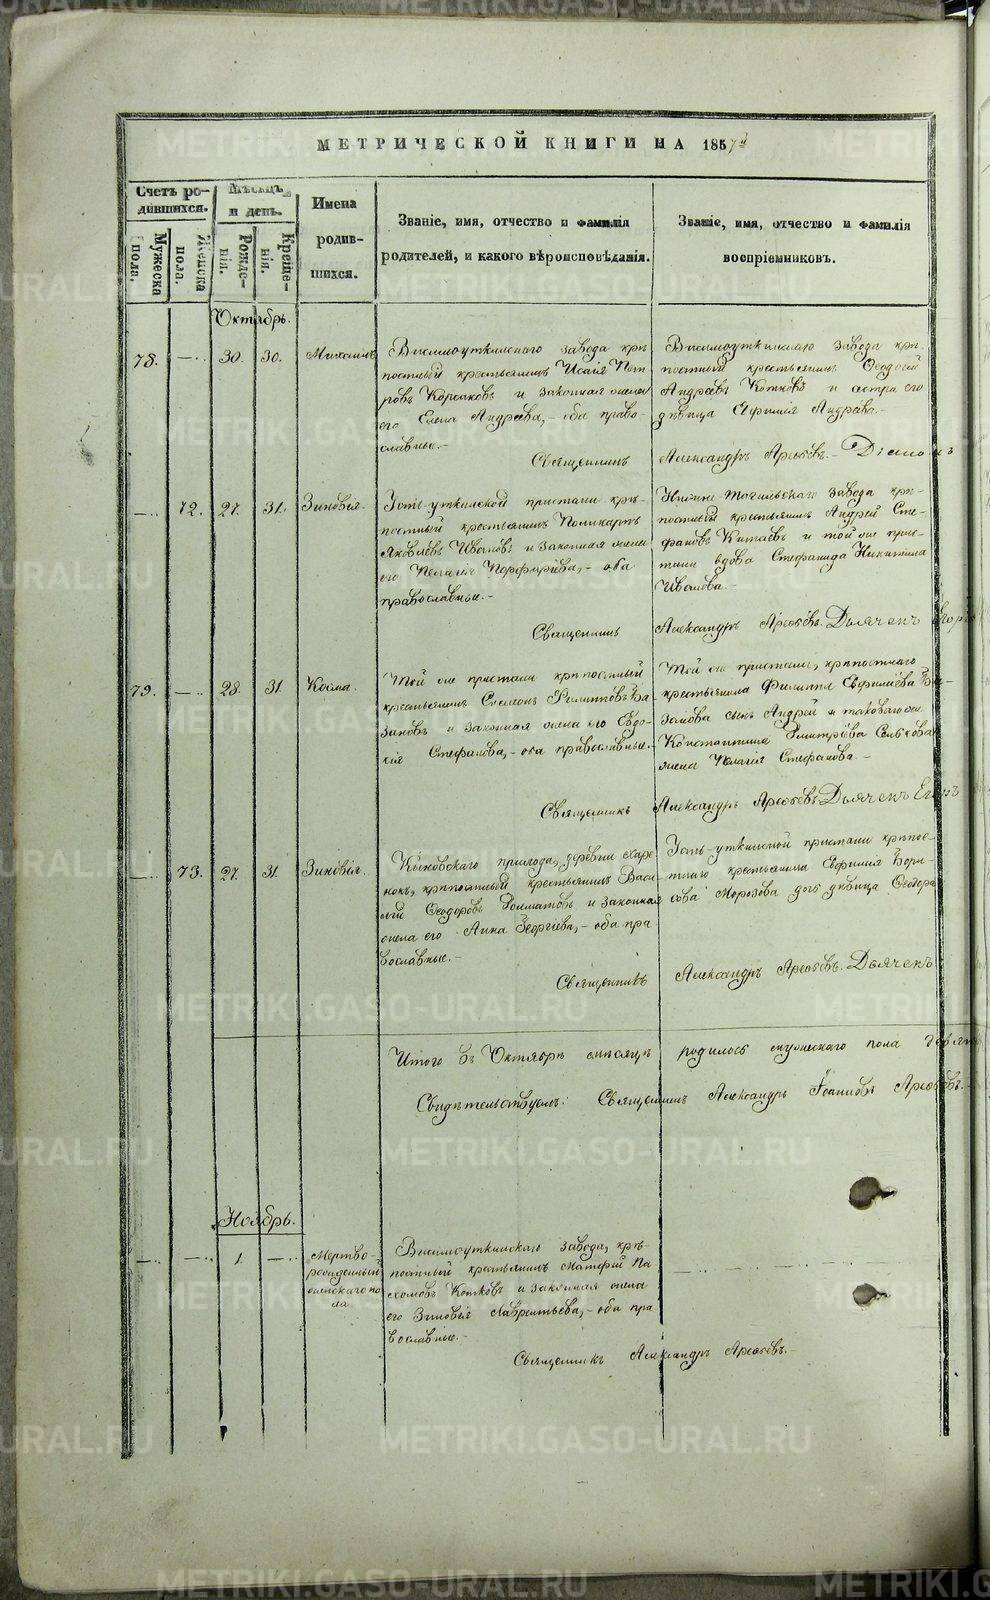 МЕТРИЧЕСКОЙ КНИГИ НА 1857й
Счетъ ро-
дившихся.
Мужеска пола.
Женска пола.
Мѣсяцъ
и день.
Рожде-
нія.
Креще-
нія.
Имена
родив-
шихся.
Званіе, имя, отчество и фамилія
родителей, и какого вѣроисповѣданія.
Званіе, имя, отчество и фамилія
воспріемниковъ.
Октябрь.
78. — 30. 30. Михаилъ
Висимоуткинскаго завода крѣ-
постный крестьянинъ Исаія Пет-
ровъ Корсаковъ и законная жена
его Елена Андреева, – оба право-
славные. –
Висимоуткинскаго завода крѣ-
постный крестьянинъ Ѳеодосій
Андреевъ Котковъ и сестра его
дѣвица Евфимія Андреева. –
Священникъ Александръ Арефьевъ. –
— 72. 27. 31. Зиновія.
Усть-уткинской пристани крѣ-
постный крестьянинъ Поликарпъ
Яковлевъ Ивановъ и законная жена
его Пелагія Порфиріева, – оба
православные. –
Нижне-Тагильскаго завода крѣ-
постный крестьянинъ Андрей Сте-
фановъ Китаевъ и той же прис-
тани вдова Стефанида Никитина
Иванова. –
Священникъ Александръ Арефьевъ. Дьячекъ Егоръ
79. — 28. 31. Косма.
Той же пристани крѣпостный
крестьянинъ Симеонъ Филипповъ Ба-
зановъ и законная жена его Евдо-
кія Стефанова, – оба православные. –
Той же пристани, крѣпостнаго
крестьянина Филиппа Евфиміева Ба-
занова сынъ Андрей и таковаго же
Константина Димитріева
жена Пелагія Стефанова. –
Священникъ Александръ Арефьевъ Дьячекъ Егоръ
— 73. 27. 31. Зиновія.
Кыновскаго прихода, деревни
крѣпостный крестьянинъ Васи-
лій Ѳеодоровъ и законная
жена его Анна Георгіева, – оба пра-
вославные. –
Усть-уткинской пристани крѣпос-
тнаго крестьянина Евфимія Бори-
сова Морозова дочь дѣвица Ѳеодора
Священникъ Александръ Арефьевъ. Дьячекъ
Итого въ Октябрѣ мѣсяцѣ родилось мужескаго пола
Свидѣтельствуемъ: Священникъ Александръ Іоанновъ Арефьевъ. –
Ноябрь.
— — 1. — Мертво-
рожденный
женскаго по-
ла
Висимоуткинскаго завода, крѣ-
постный крестьянинъ Матфей Па-
хомовъ Котковъ и законная жена
его Зиновія Лаврентьева, – оба пра-
вославные. –
Священникъ Александръ Арефьевъ. –
METRIKI.GASO-URAL.RU